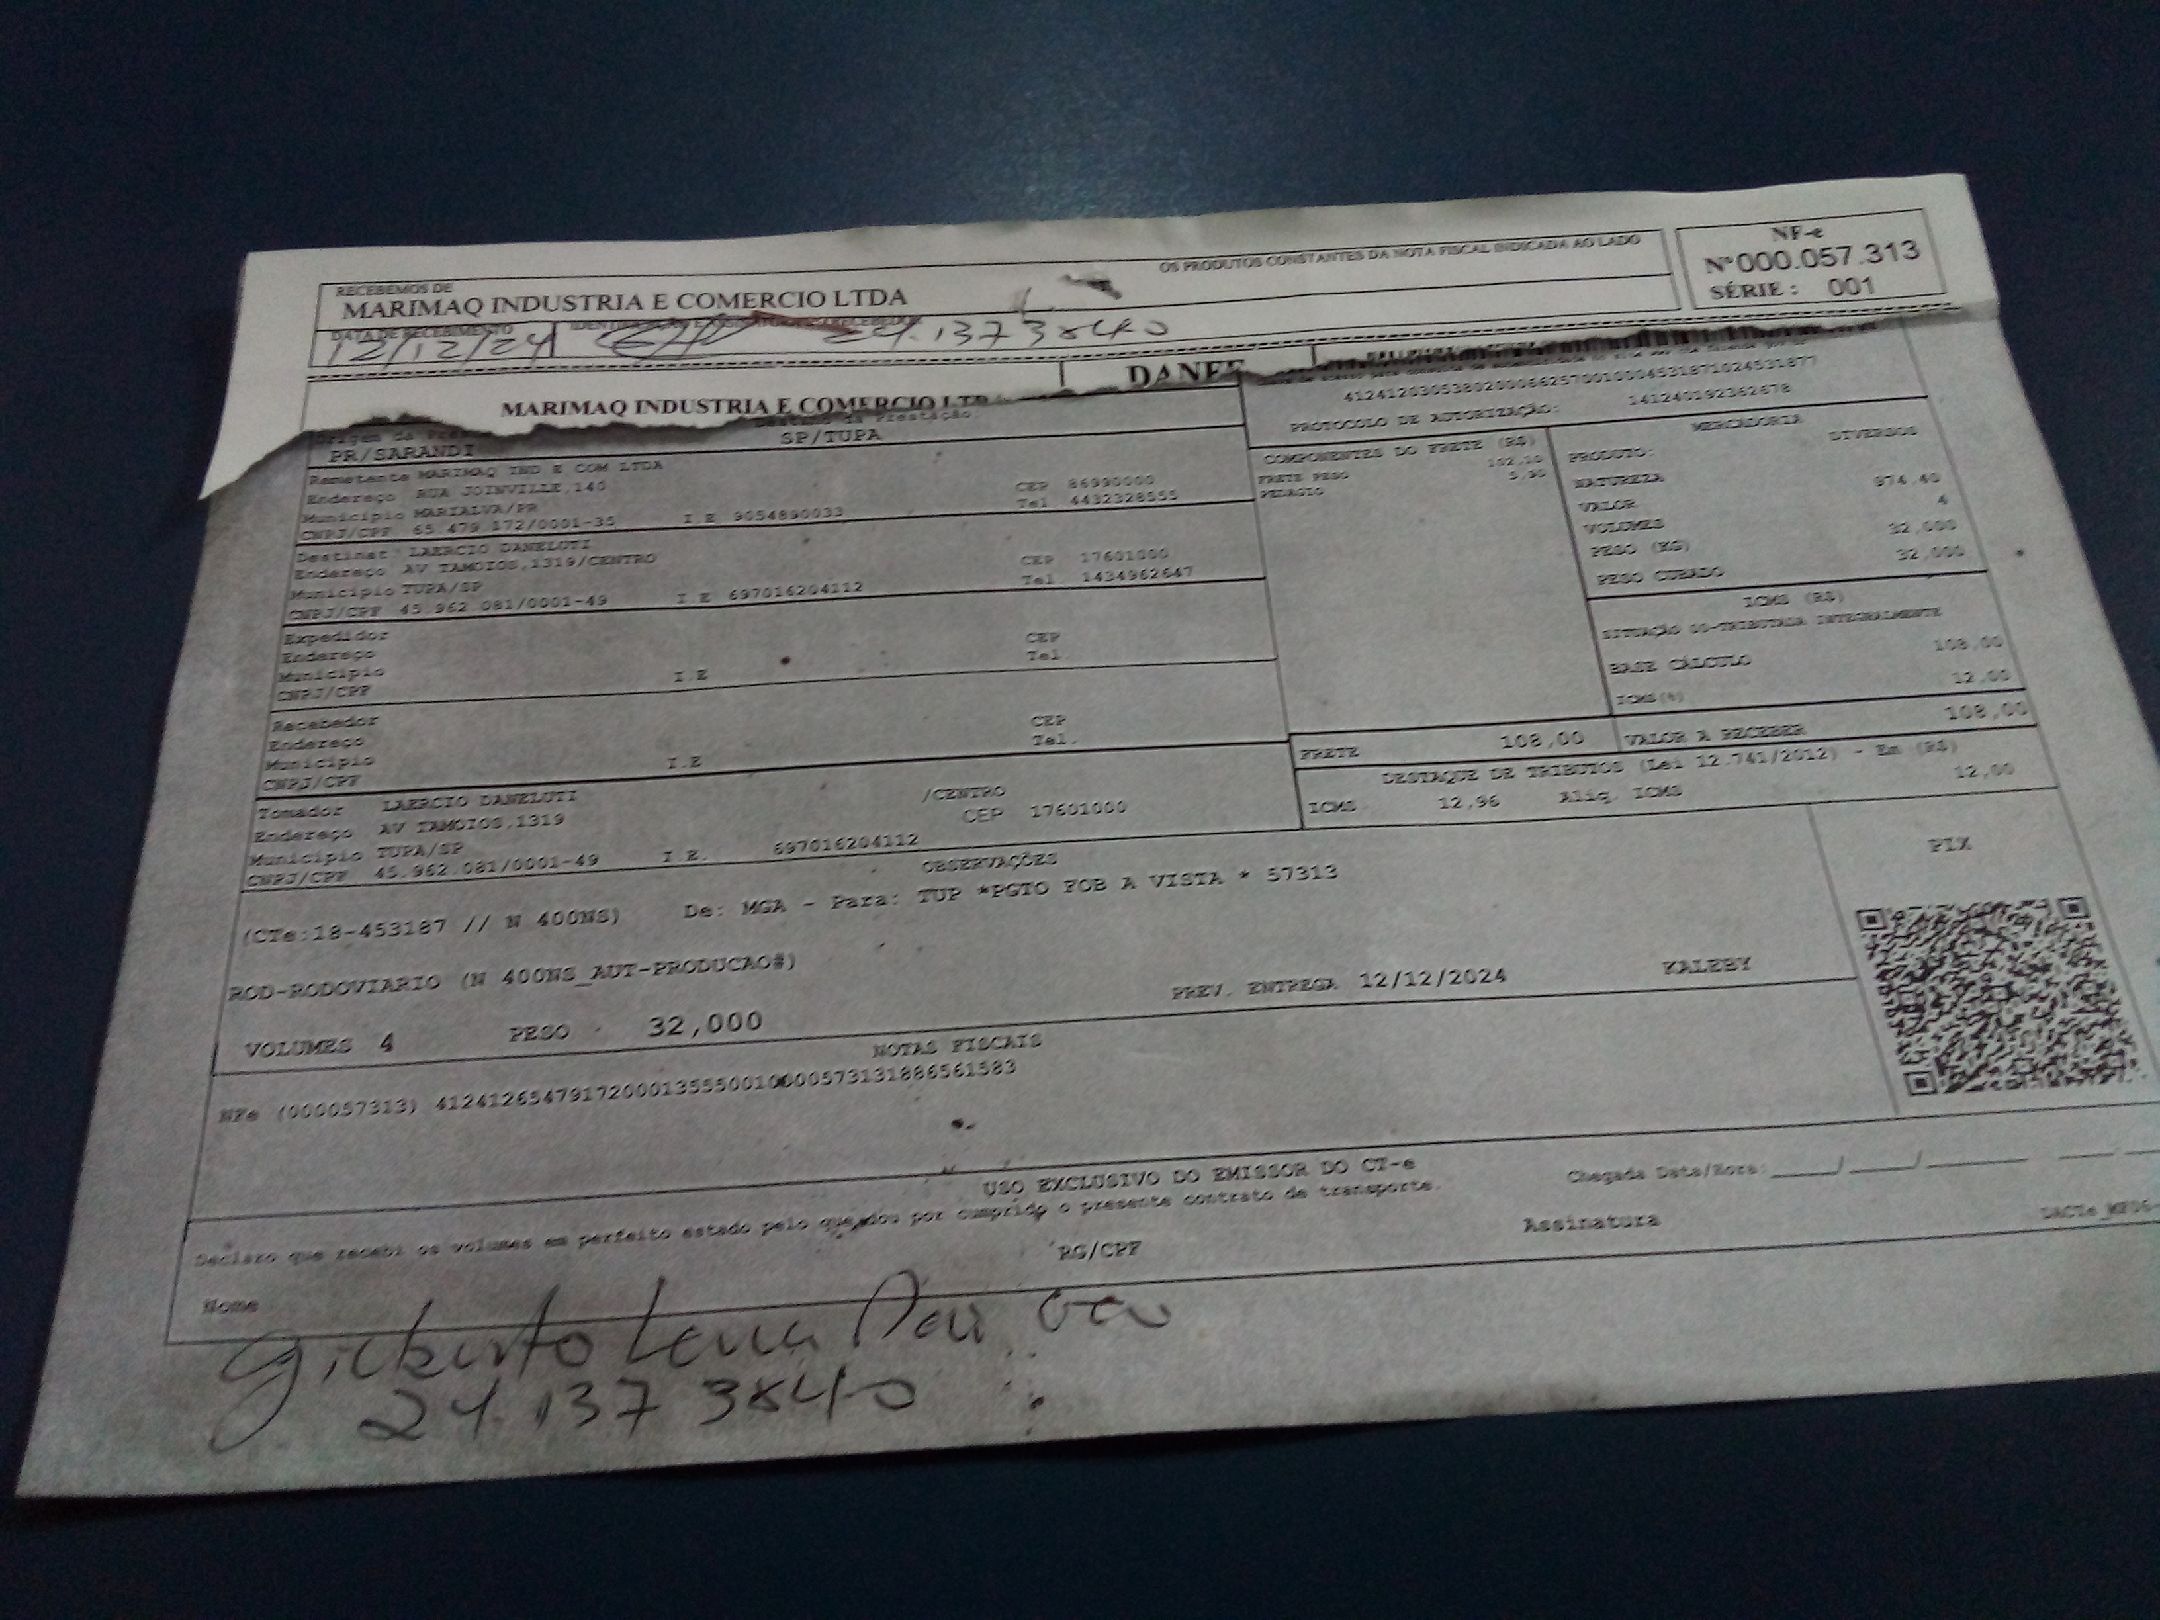 RECEBEMOS DE
OS PRODUTOS CONSTANTES DA NOTA FISCAL INDICADA AO LADO
MARIMAQ INDUSTRIA E COMERCIO LTDA
NF-e
Nº 000.057.313
SÉRIE : 001
DATA DE RECEBIMENTO
12/12/24 24.137 384-0
DANFE
MARIMAQ INDUSTRIA E COMERCIO LTDA
PR/SARANDI SP/TUPA
Remetente MARIMAQ IND E COM LTDA
Endereço RUA JOINVILLE,140 CEP 86990000
Município MARIALVA/PR Tel 4432328555
CNPJ/CPF 65.479.172/0001-35 I.E 9054890033
Destinat LAERCIO DANELUTI
Endereço AV TAMOIOS,1319/CENTRO CEP 17601000
Município TUPA/SP Tel 1434962647
CNPJ/CPF 45.962.081/0001-49 I.E 697016204112
Expedidor
Endereço CEP
Município Tel
CNPJ/CPF I.E
Recebedor
Endereço CEP
Município Tel.
CNPJ/CPF I.E
Tomador LAERCIO DANELUTI
Endereço AV TAMOIOS,1319 /CENTRO
Município TUPA/SP CEP 17601000
CNPJ/CPF 45.962.081/0001-49 I.E. 697016204112
41241203053802000662570010004531871024531877
PROTOCOLO DE AUTORIZAÇÃO: 141240192362678
COMPONENTES DO FRETE (R$)
FRETE PESO 102,10
PEDAGIO 5,90
MERCADORIA
PRODUTO: DIVERSOS
NATUREZA
VALOR 974,40
VOLUMES 4
PESO (KG) 32,000
PESO CUBADO 32,000
ICMS (R$)
SITUAÇÃO 00-TRIBUTADA INTEGRALMENTE
BASE CÁLCULO 108,00
ICMS(%) 12,00
FRETE 108,00 VALOR A RECEBER 108,00
DESTAQUE DE TRIBUTOS (Lei 12.741/2012) - Em (R$)
ICMS 12,96 Aliq. ICMS 12,00
OBSERVAÇÕES
(CTe:18-453187 // N 400NS) De: MGA - Para: TUP *PGTO FOB A VISTA * 57313
PIX
ROD-RODOVIARIO (N 400NS_AUT-PRODUCAO#)
PREV. ENTREGA 12/12/2024 KALEBY
VOLUMES 4 PESO 32,000
NOTAS FISCAIS
NFe (000057313) 41241265479172000135550010000573131886561583
USO EXCLUSIVO DO EMISSOR DO CT-e
Declaro que recebi os volumes em perfeito estado pelo que dou por cumprido o presente contrato de transporte.
Chegada Data/Hora: ____/____/____
Nome RG/CPF Assinatura
Gilberto
24.137 384-0